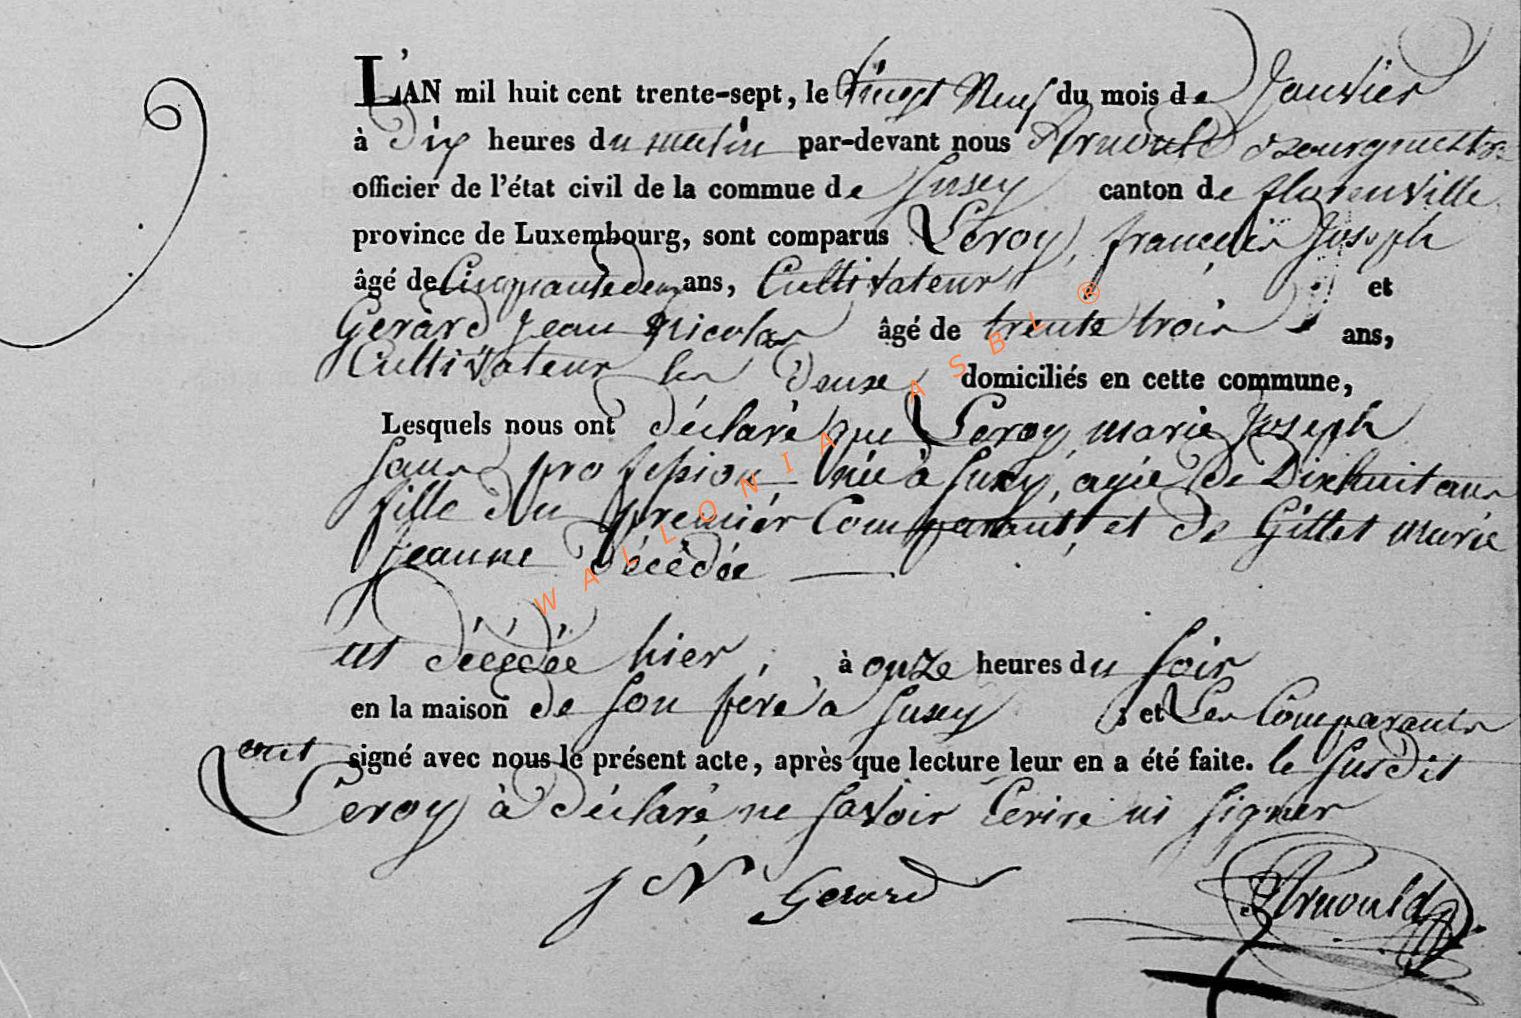 L'AN mil huit cent trente-sept, le Vingt Neuf du mois de Janvier
à Dix heures du matin par-devant nous Arnould Bourgmestre
officier de l'état civil de la commue de Suxy canton de florenville
province de Luxembourg, sont comparus Leroy, françois Joseph
âgé de Cinquante deux ans, Cultivateur et
Gerard Jean Nicolas âgé de trente trois ans,
Cultivateur les Deux domiciliés en cette commune,
Lesquels nous ont déclaré que Leroy marie Joseph
sans profession née à Suxy, agée de Dixhuit ans
fille du premier Comparant, et de Gillet marie
jeanne décédée
est décédée hier, à onze heures du soir
en la maison de son père à Suxy ; et Les Comparants
ont signé avec nous le présent acte, après que lecture leur en a été faite. le susdit
Leroy à déclaré ne savoir Ecrire ni signer
J N Gerard Arnould
WALLONIA ASBL ®